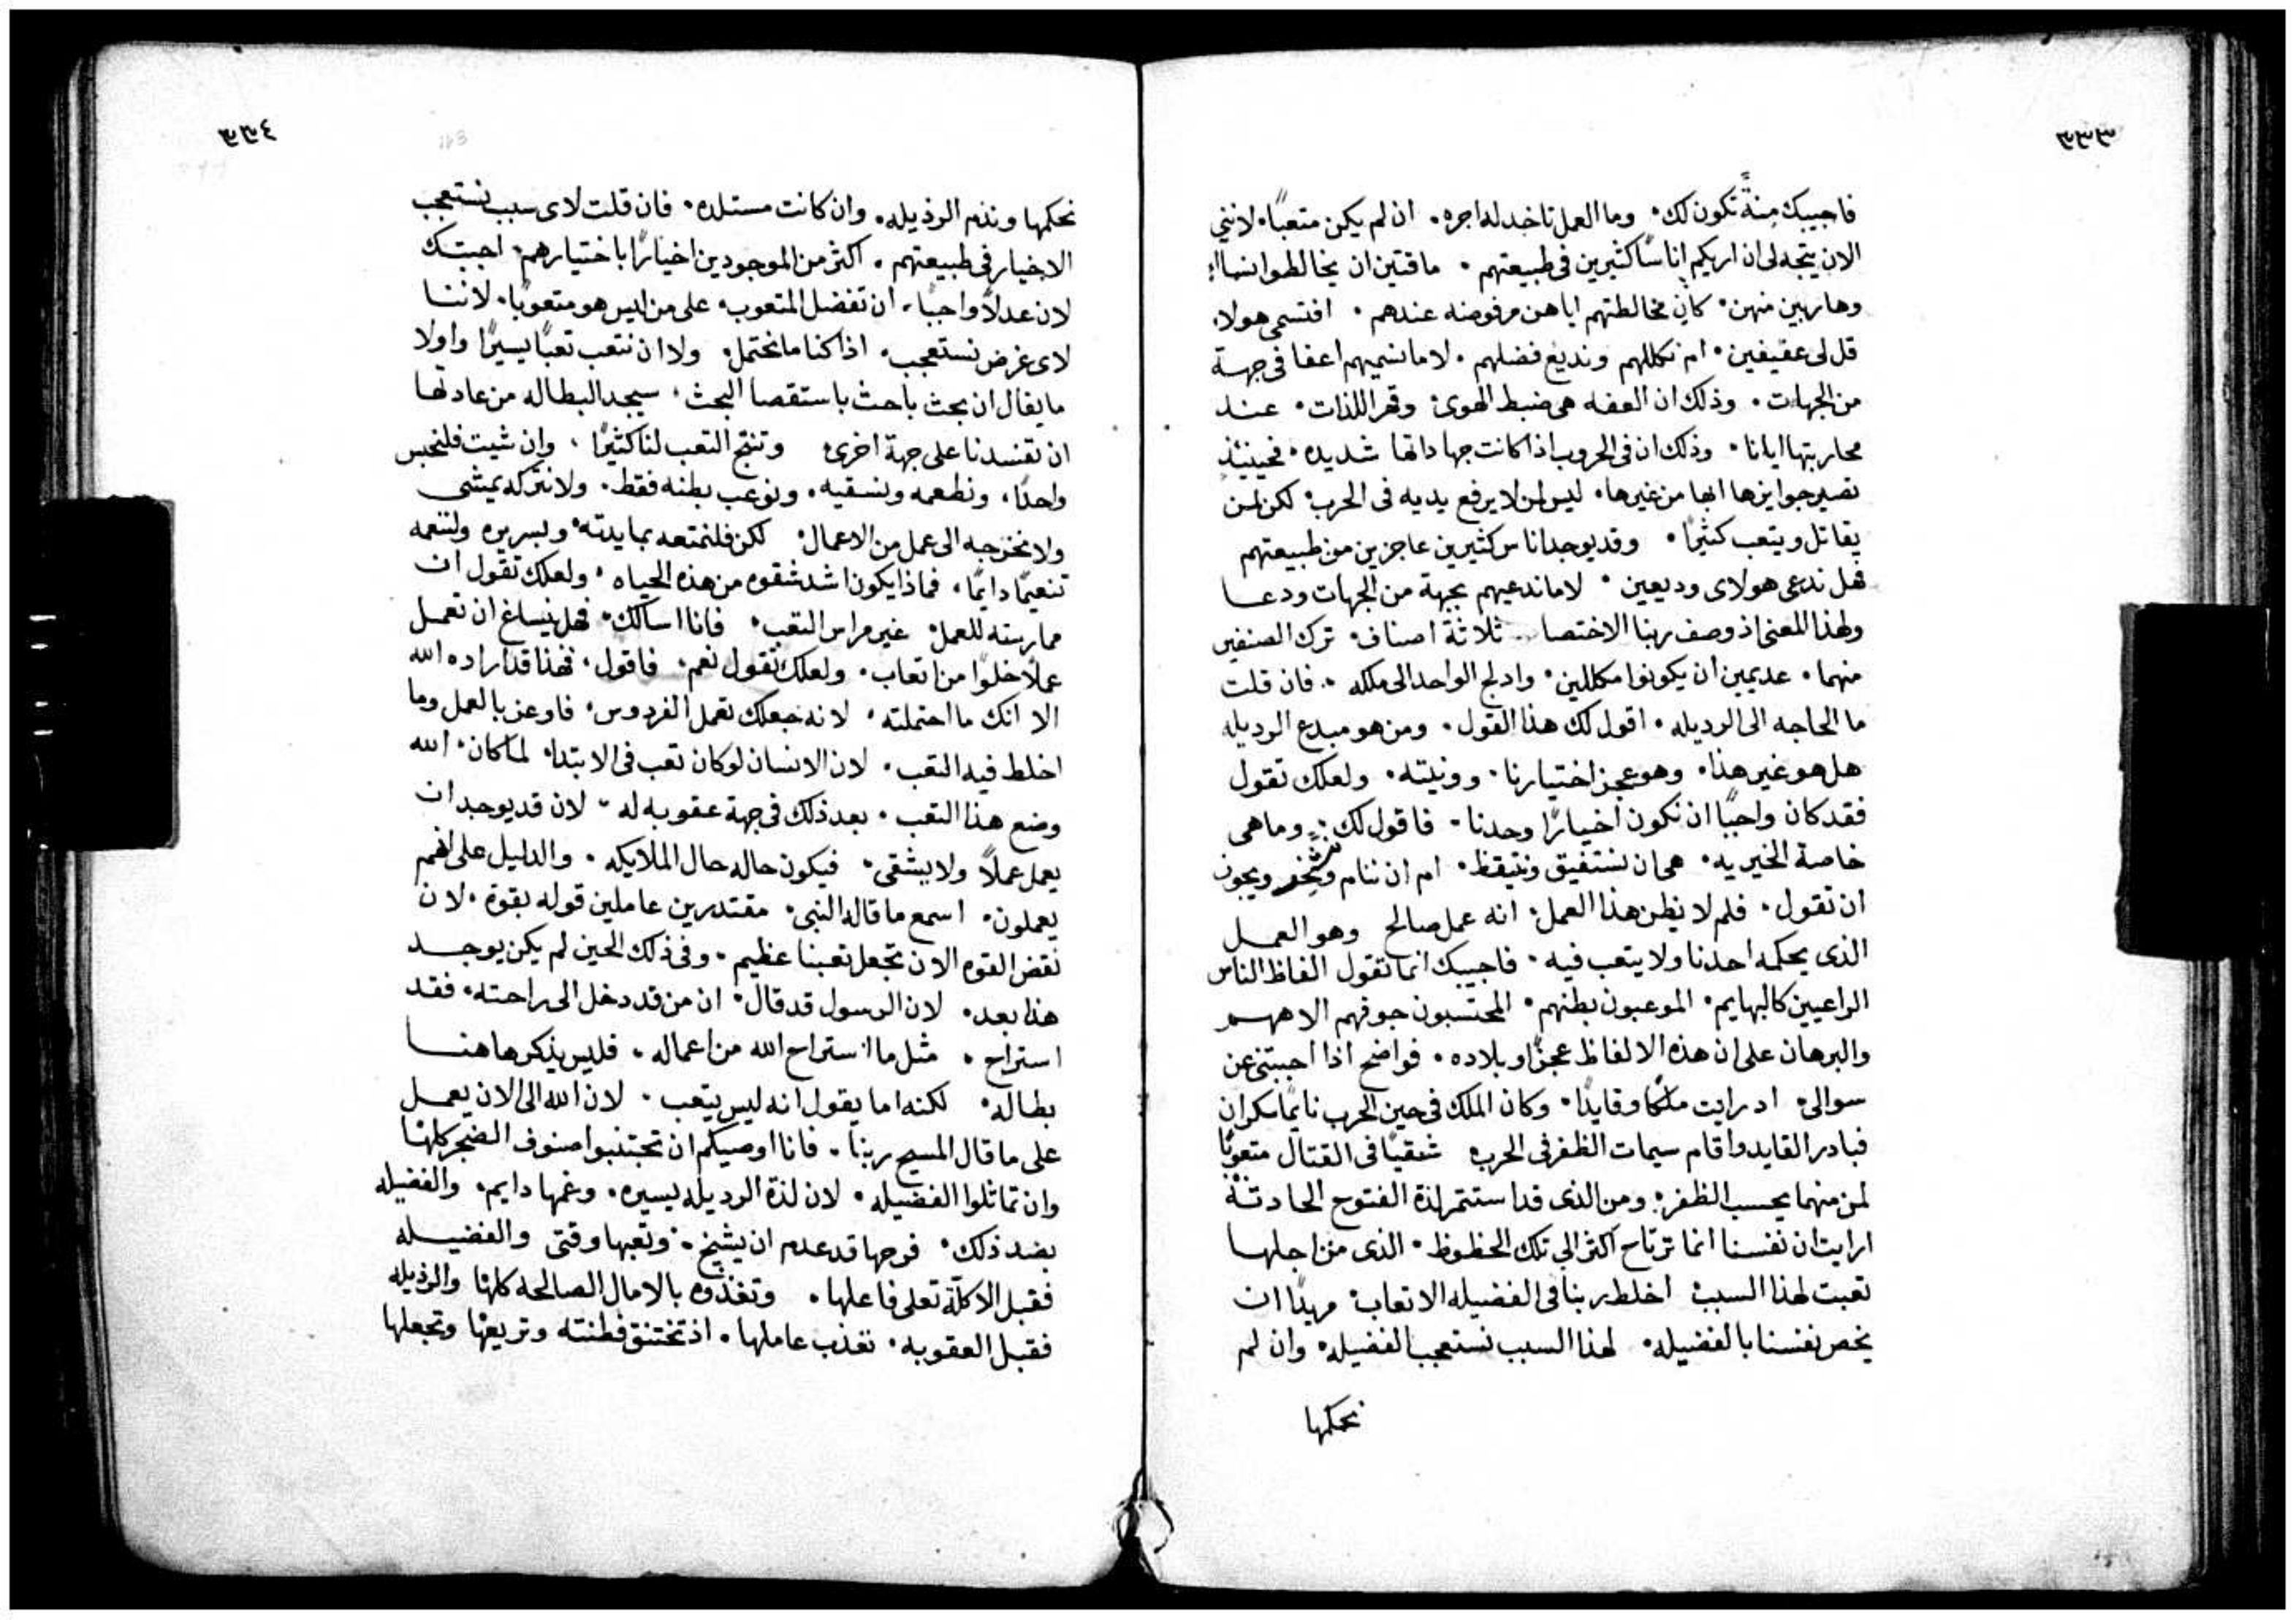 ٣٣٣
فاجيبك مِنةً تكون لك. وما العمل تاخد له اجره. ان لم يكن متعبًا. لانني
الان يتجه لى ان اريكم اناسًا كثيرين فى طبيعتهم. ماقتين ان يخالطوا نساء
وهاربين منهن. كان مخالطتهم اياهن مرفوضه عندهم. افتسمى هولا
قل لى عفيفين. ام نكللهم ونديع فضلهم. لا ما نسميهم اعفا فى جهة
من الجهات. وذلك ان العفه هى ضبط الهوى وقهر اللذات. عند
محاربتها ايانا. وذلك ان فى الحروب اذا كانت جهاداتها شديده. فحينيذٍ
تصير جوايزها ابها من غيرها. ليس لمن لا يرفع يديه فى الحرب. لكن لمن
يقاتل ويتعب كثيرًا. وقد يوجد اناس كثيرين عاجزين من طبيعتهم
فهل ندعى هولاى وديعين. لا ما ندعيهم بجهة من الجهات ودعا
ولهذا المعنى اذ وصف ربنا الاختصا ثلاثة اصناف. ترك الصنفين
منهما. عديمين ان يكونوا مكللين. وادلج الواحد الى ملكه. فان قلت
ما الحاجه الى الرديله. اقول لك هذا القول. ومن هو مبدع الرديله
هل هو غير هذا. وهو عجز اختيارنا. وونيته. ولعلك تقول
فقد كان واجبًا ان نكون اخيارًا وحدنا. فاقول لك. وما هى
خاصة الخيريه. هى ان نستفيق ونتيقظ. ام ان ننام ونشخر ويجوز
ان تقول. فلم لا نظن هذا العمل. انه عمل صالح وهو العمل
الذى يحكمه احدنا ولا يتعب فيه. فاجيبك انما تقول الفاظ الناس
الراعيين كالبهايم. الموعبون بطنهم. المحتسبون جوفهم الاههم
والبرهان على ان هذه الالفاظ عجزًا وبلاده. فواضح اذا اجبتنى عن
سوالى. اد رايت ملكًا وقايدًا. وكان الملك فى حين الحرب نايمًا سكران
فبادر القايد واقام سيمات الظفر فى الحرب شقيًا فى القتال متعوبًا
لمن منهما يحسب الظفر. ومن الذى قد استتمر لذة الفتوح الحادثة
ارايت ان نفسنا انما ترتاح اكثر الى تلك الحظوظ. الذى من اجلها
تعبت لهذا السبب اخلط ربنا فى الفضيله الاتعاب مريدًا ان
يخص نفسنا بالفضيله. لهذا السبب نستعجب الفضيله. وان لم
نحكمها
٣٣٤
نحكمها ونذم الرذيله. وان كانت مستلده. فان قلت لاى سبب نستعجب
الاخيار فى طبيعتهم. اكثر من الموجودين اخيارًا باختيارهم. اجبتك
لان عدلاً واجبًا. ان تفضل المتعوب. على من ليس هو متعوبًا. لاننا
لاى غرض نستعجب. اذا كنا ما نحتمل. ولا ان نتعب تعبًا يسيرًا واولا
ما يقال ان بحث باحث باستقصا البحث. سيجد البطاله من عادتها
ان تفسدنا على جهة اخرى وتنتج التعب لنا كثيرًا. وان شيت فلنحبس
واحدًا. ونطعمه ونسقيه. ونوعب بطنه فقط. ولا نتركه يمشى
ولا نخرجه الى عمل من الاعمال. لكن فلنمتعه بمايدته. وبسريره ولننعمه
تنعيمًا دايمًا. فماذا يكون اشد شقوه من هذه الحياه. ولعلك تقول ان
ممارسته للعمل غير مراس التعب. فانا اسالك. فهل ينساغ ان تعمل
عملاً خلوًا من اتعاب. ولعلك تقول نعم. فاقول. فهذا قد اراده الله
الا انك ما احتملته. لانه جعلك تعمل الفردوس. فاوعز بالعمل وما
اخلط فيه التعب. لان الانسان لو كان تعب فى الابتدا. لما كان. الله
وضع هذا التعب. بعد ذلك فى جهة عقوبه له. لان قد يوجد ان
يعمل عملاً ولا يشقى. فيكون حاله حال الملايكه. والدليل على انهم
يعملون. اسمع ما قاله النبى. مقتدرين عاملين قوله بقوة. لان
نقض القوه الان تجعل تعبنا عظيم. وفى ذلك الحين لم يكن يوجد
هذا بعد. لان الرسول قد قال. ان من قد دخل الى راحته. فقد
استراح. مثل ما استراح الله من اعماله. فليس يذكر هاهنا
بطاله. لكنه اما يقول انه ليس يتعب. لان الله الى الان يعمل
على ما قال المسيح ربنا. فانا اوصيكم ان تجتنبوا صنوف الضجر كلها
وان تماثلوا الفضيله. لان لذة الرديله يسيره. وغمها دايم. والفضيله
بضد ذلك. فرحها قد عدم ان يشيخ. وتعبها وقتى والفضيله
فقبل الاكلة تعلى فاعلها. وتغذوه بالامال الصالحه كلها والرذيله
فقبل العقوبه. تعذب عاملها. اذ تختنق فطنته وتريعها وتجعلها